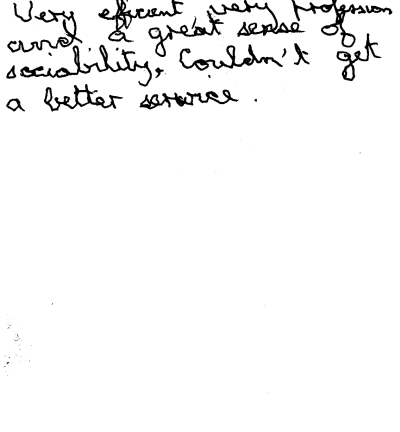 Very efficient very profession
and a great sense of
sociability, Couldn't get
a better service.